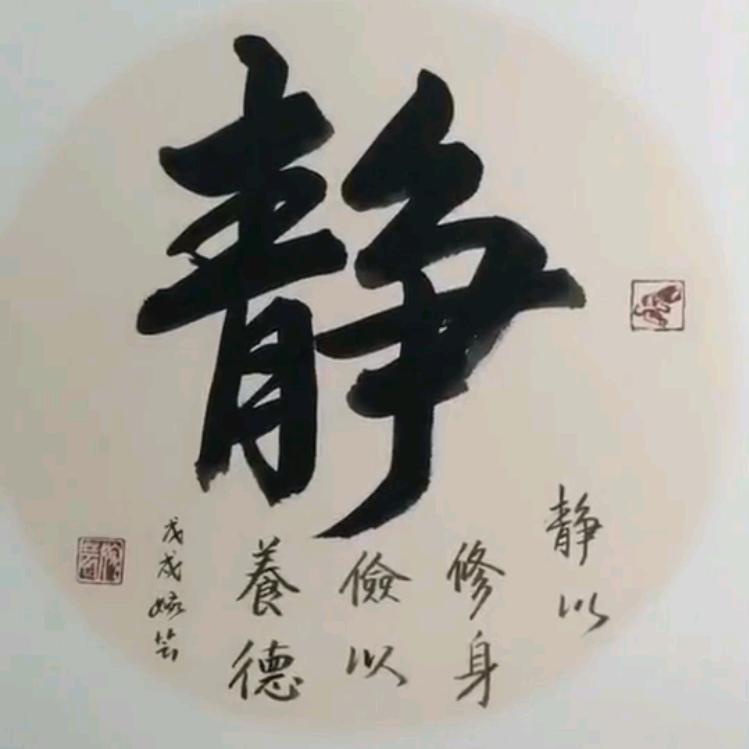 静
静以
修身
儉以
養德
戊戌